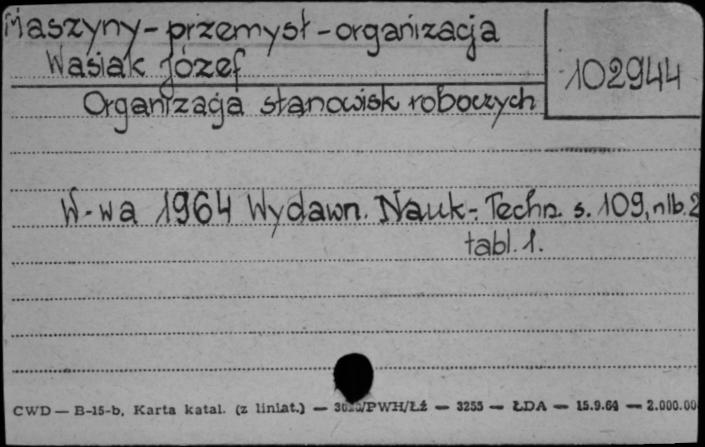 Maszyny - przemysł - organizacja
Wasiak Józef
102944
Organizacja stanowisk roboczych
W-wa 1964 Wydawn. Nauk.-Techn. s. 109, nlb. 2
tabl. 1.
CWD — B-15-b, Karta katal. (z liniat.) — /PWH/Łź — 3255 — ŁDA — 15.9.64 — 2.000.00